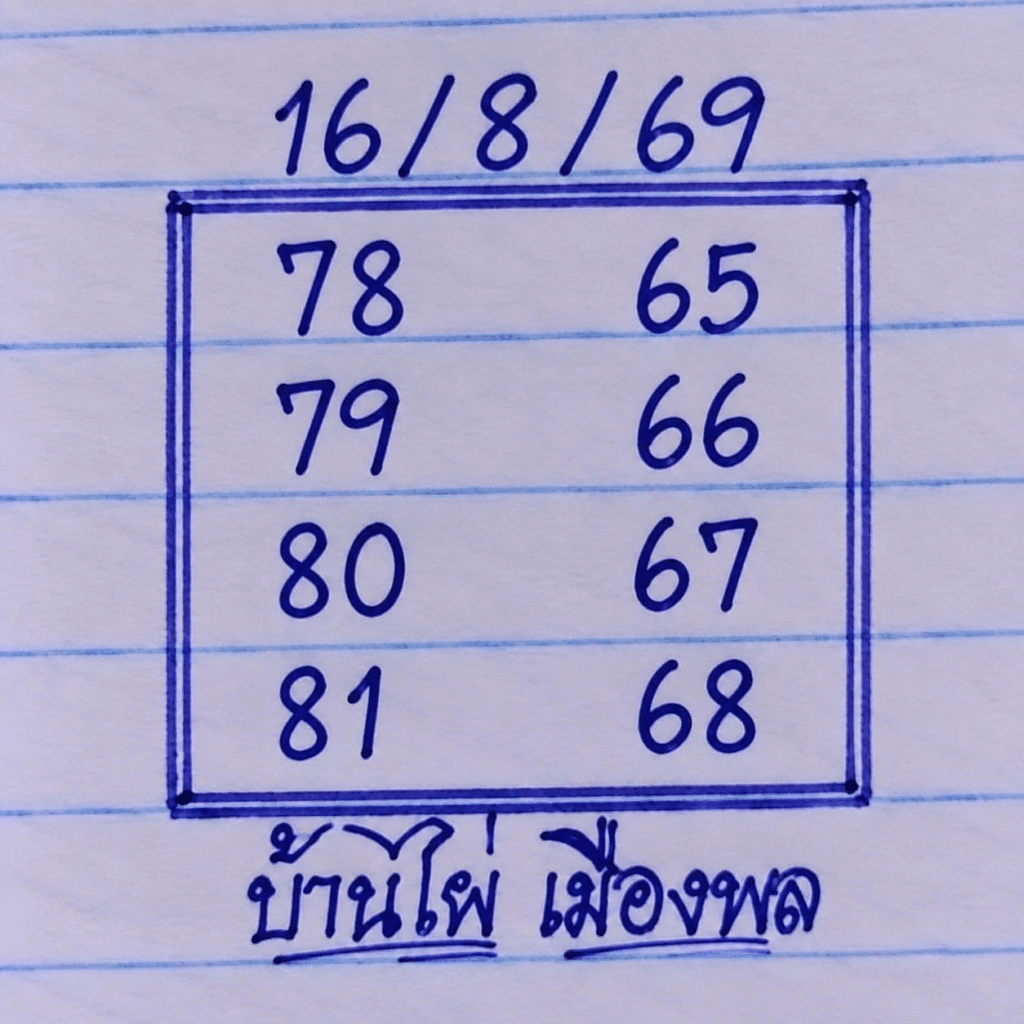 16/8/69
78 65
79 66
80 67
81 68
บ้านไผ่ เมืองพล